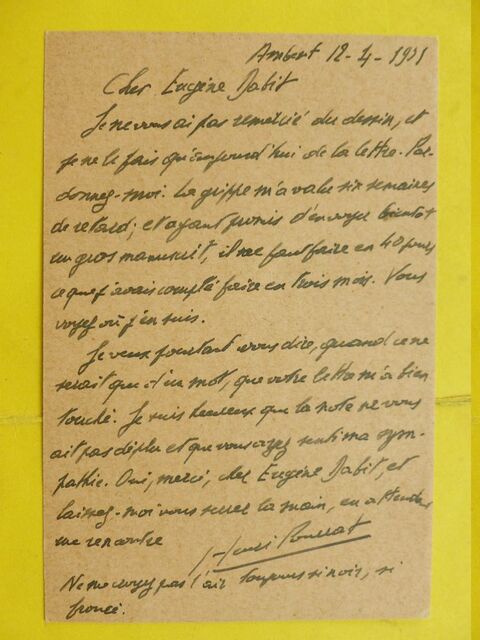 Ambert 12-4-1931
Cher Eugène Dabit
Je ne vous ai pas remercié du dessin, et
je ne le fais qu'aujourd'hui de la lettre. Par-
donnez-moi. La grippe m'a valu six semaines
de retard; et ayant promis d'envoyer bientôt
un gros manuscrit, il me faut faire en 40 jours
ce que j'avais compté faire en trois mois. Vous
voyez où j'en suis.
Je veux pourtant vous dire, quand ce ne
serait que d'un mot, que votre lettre m'a bien
touché. Je suis heureux que la note ne vous
ait pas déplu et que vous ayez senti ma sym-
pathie. Oui, merci, cher Eugène Dabit, et
laissez-moi vous serrer la main, en attendant
une rencontre
Henri Pourrat
Ne me croyez pas l'air toujours si noir, si
froncé.